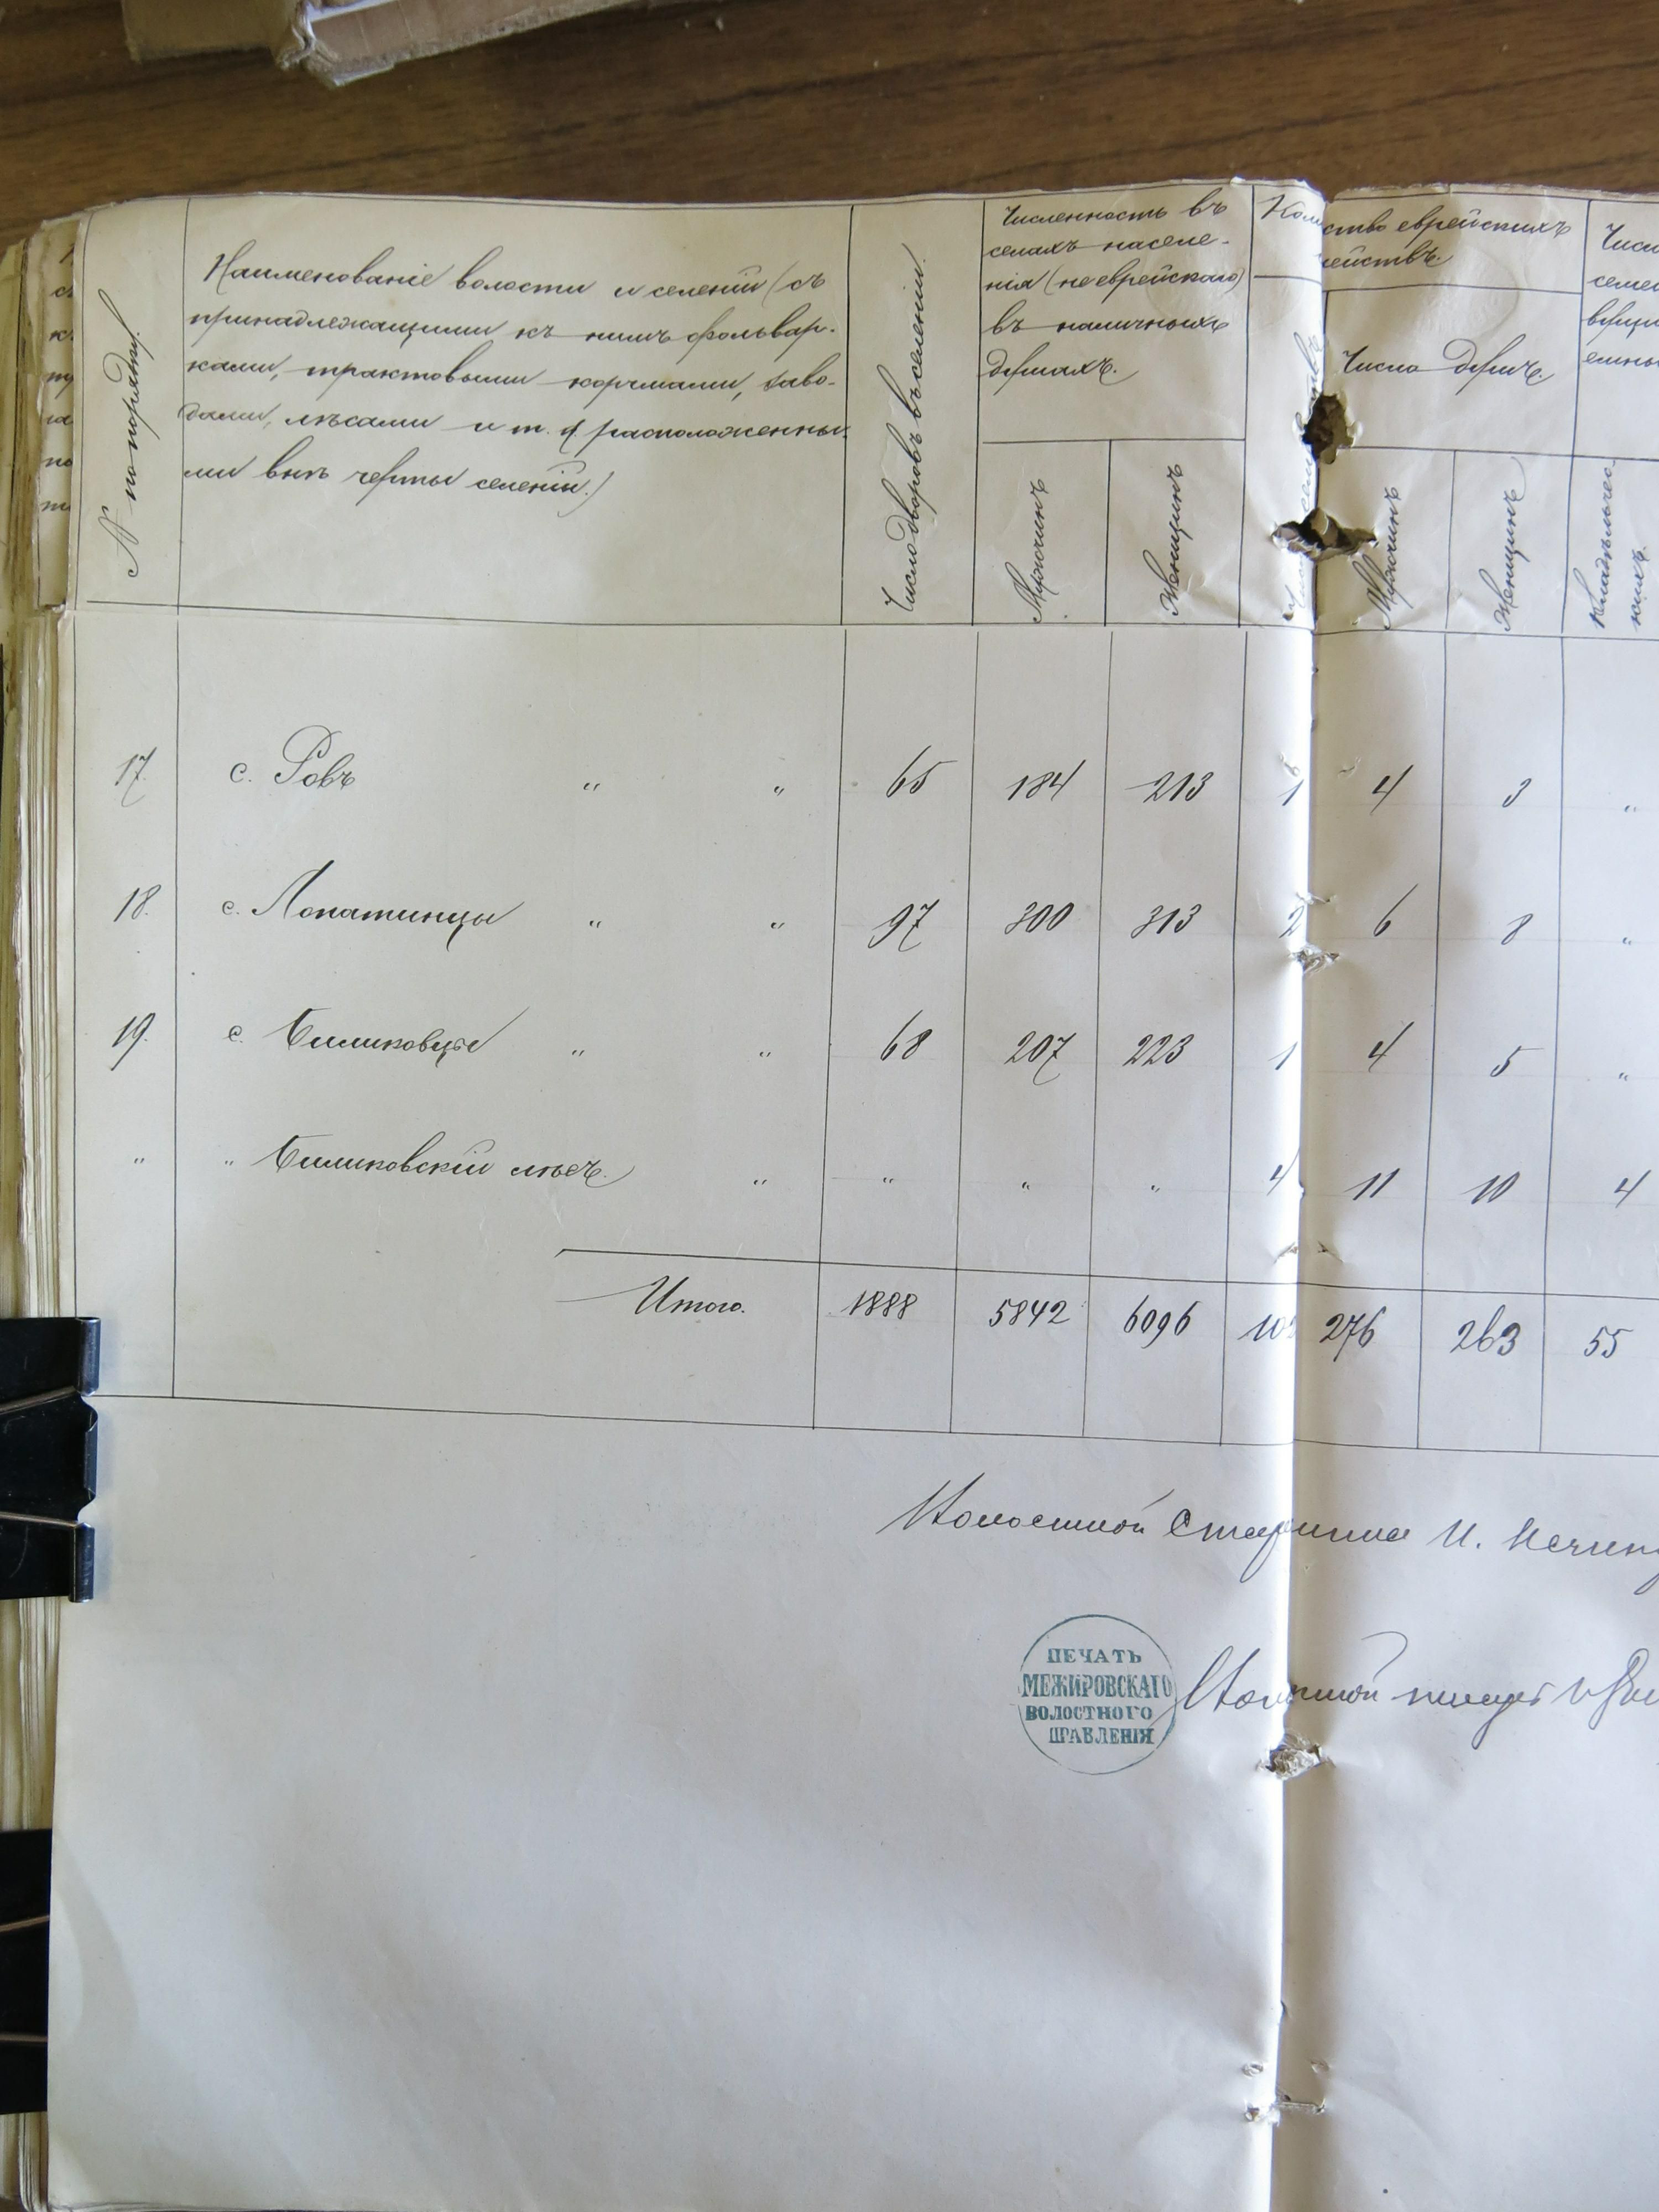 № по порядку.
Наименованіе волости и селеній (съ
принадлежащими къ нимъ фольвар-
ками, трактовыми корчмами, заво-
дами, лѣсами и т. д. расположенны-
ми внѣ черты селеній.)
Число дворовъ въ селеніи.
Численность въ
селахъ населе-
нія (не еврейскаго)
въ наличныхъ
душахъ.
Мужчинъ
Женщинъ
Коли
ство еврейскихъ
ействъ.
Число душъ.
Мужчинъ
Женщинъ
Числ
семе
владѣльчес
кихъ.
17. с. Ровъ „ „ 65 184 213 1 4 3 „
18. с. Лопатинцы „ „ 97 300 313 2 6 8 „
19. с. Биликовцы „ „ 68 207 223 1 4 5 „
„ „ Биликовскій лѣсъ. „ „ „ „ 4 11 10 4
Итого. 1888 5842 6096 10 276 263 55
Волостной Старшина И.
ПЕЧАТЬ
МЕЖИРОВСКАГО
ВОЛОСТНОГО
ПРАВЛЕНІЯ
Волостной писарь